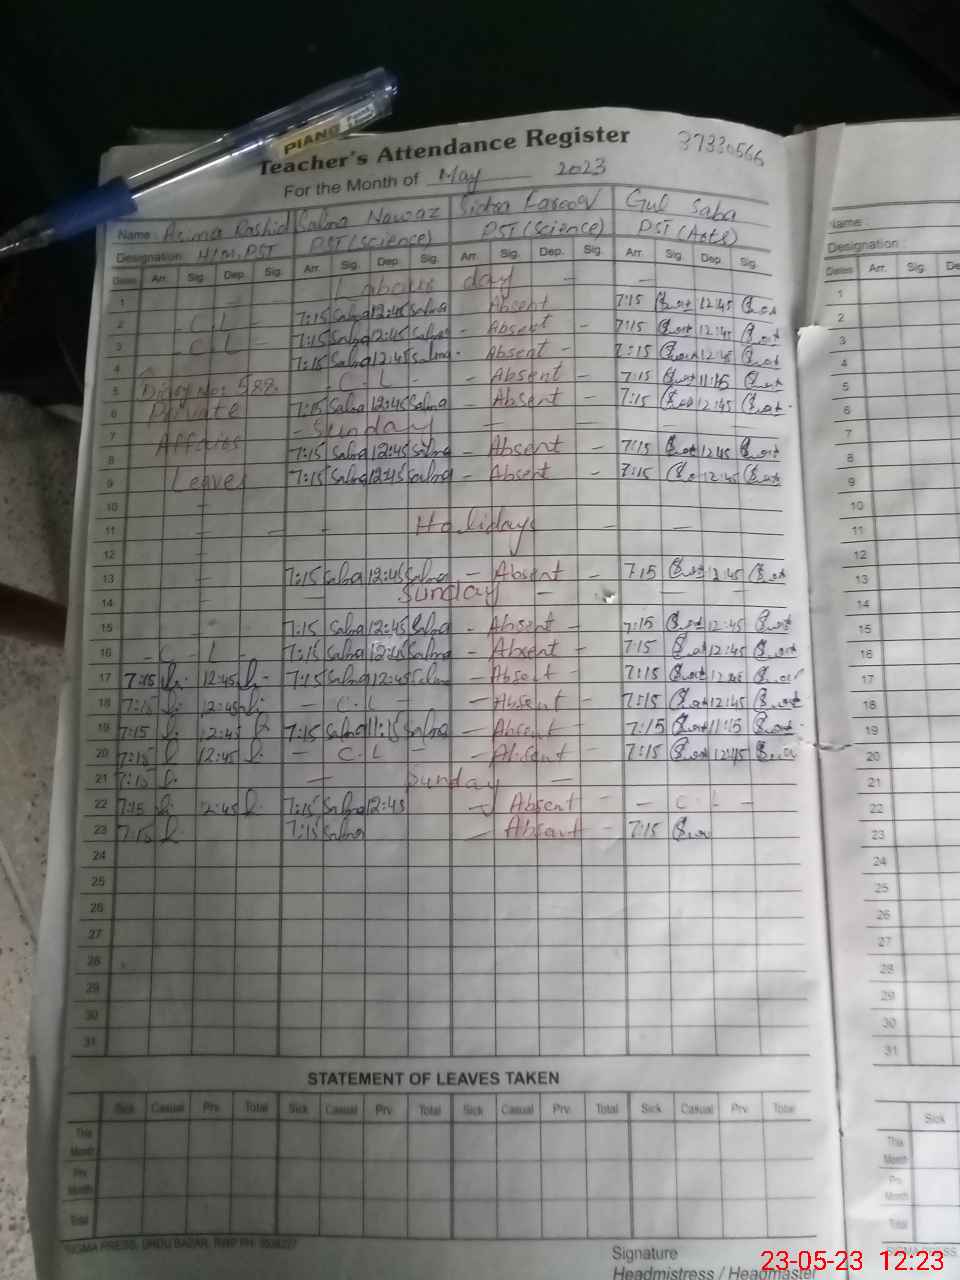 PIANO
Teacher's Attendance Register 37330566
For the Month of May 2023
Name: Asima Rashid Salma Nawaz Sidra Gul Saba
Designation: H/M, PST PST (Science) PST (Science) PST (Arts)
Dates Arr. Sig. Dep. Sig. Arr. Sig. Dep. Sig. Arr. Sig. Dep. Sig. Arr. Sig. Dep. Sig.
1 - - Labour day - -
2 - C L - 7:15 Salma 12:45 Salma Absent 7:15 12:45
3 - C L - 7:15 Salma 12:45 Salma - Absent - 7:15 12:45
4 7:15 Salma 12:45 Salma - Absent - 7:15 12:45
5 Diary No: 588 - C - L - - Absent - 7:15 11:15
6 Private 7:15 Salma 12:45 Salma - Absent - 7:15 12:45
7 Affairs - Sunday - - - -
8 7:15 Salma 12:45 Salma - Absent - 7:15 12:45
9 Leaves 7:15 Salma 12:45 Salma - Absent - 7:15 12:45
10 -
11 - - - Holidays - -
12 -
13 - 7:15 Salma 12:45 Salma - Absent - 7:15 12:45
14 - - Sunday - - - -
15 - 7:15 Salma 12:45 Salma - Absent - 7:15 12:45
16 - C - L - 7:15 Salma 12:45 Salma - Absent - 7:15 12:45
17 7:15 12:45 7:15 Salma 12:45 Salma - Absent - 7:15 12:45
18 7:15 12:45 - C - L - - Absent - 7:15 12:45
19 7:15 12:45 7:15 Salma 11:15 Salma - Absent - 7:15 11:15
20 7:15 12:45 - C - L - - Absent - 7:15 12:45
21 7:15 - Sunday -
22 7:15 12:45 7:15 Salma 12:45 - Absent - - C - L -
23 7:15 7:15 Salma - Absent - 7:15
24
25
26
27
28
29
30
31
STATEMENT OF LEAVES TAKEN
Sick Casual Prv. Total Sick Casual Prv. Total Sick Casual Prv. Total Sick Casual Prv. Total
This Month
Prv. Month
Total
SIGMA PRESS, URDU BAZAR, RWP PH:
Signature
Headmistress / Headmaster
Name :
Designation:
Dates Arr. Sig. De
1
2
3
4
5
6
7
8
9
10
11
12
13
14
15
16
17
18
19
20
21
22
23
24
25
26
27
28
29
30
31
Sick
This Month
Prv. Month
Total
SIGMA PRESS,
23-05-23 12:23